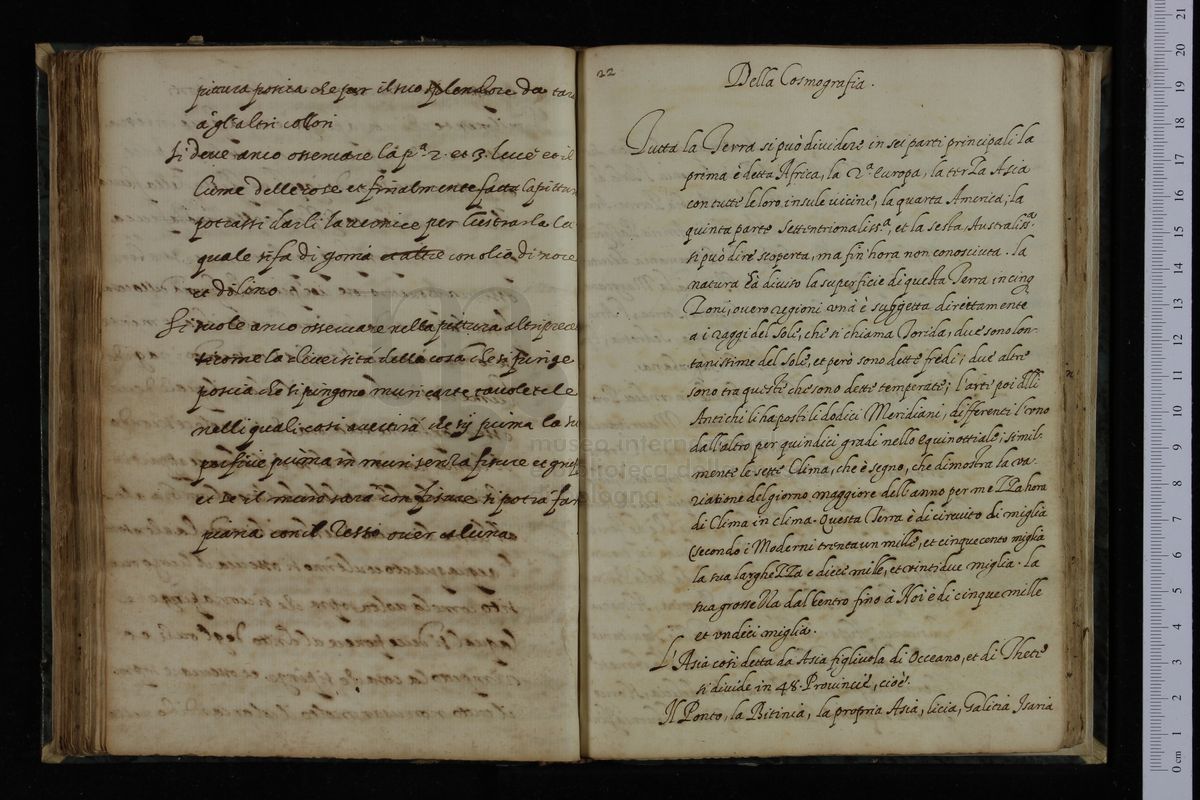 pittura posica che per il suo splendore da
à gl'altri collori
Si deve anco osservare la p.ª 2. et 3. luce et il
lume delle cose et finalmente fatta la pittura
potrassi darli la vernice per lustrarla la
quale si fa di goma et altre con olio di noce
et di lino
Si vuole anco osservare nella pittura
la diversità della cosa che si pinge
poscia che si pingono muri carte tavole tele
nelli quali casi avertirà che sij prima la
prima in muri senza fissure
et se il muro sarà con fissure si potrà far
con il gesso over
22
Della Cosmografia.
Tutta la Terra si può dividere in sei parti principali la
prima è detta Africa, la 2.ª Europa, la terza Asia
con tutte le loro insule vicine, la quarta America, la
quinta parte Settentrionaliss.ª, et la sesta Australiss.ª
si può dire scoperta, ma fin'hora non conosciuta. la
natura hà diviso la superficie di questa Terra in cinq
Zoni, overo regioni una è suggetta direttamente
a i raggi del Sole, che si chiama Torida, due sono lon-
tanissime del Sole, et però sono dette fredi; due altre
sono tra questi che sono dette temperate; l'arti poi dlli
Antichi li ha posti li dodici Meridiani, differenti l'uno
dall'altro per quindici gradi nello equinottiale; simil-
mente le sette Clima, che è segno, che dimostra la va-
riatione del giorno maggiore dell'anno per mezza hora
di Clima in clima. Questa Terra è di circuito di miglia
secondo i Moderni trenta un mille, et cinquecento miglia
la sua larghezza e diece mille, et vinti due miglia. la
sua grossezza dal Centro fino à Noi è di cinque mille
et undici miglia.
L'Asia così detta da Asia figliuola di Occeano, et di Theti
si divide in 48. Provincie, cioè.
Il Ponto, la Bitinia, la propria Asia, licia, Galicia Isaria
museo interna
blioteca d
bologna
0 cm 1 2 3 4 5 6 7 8 9 10 11 12 13 14 15 16 17 18 19 20 21